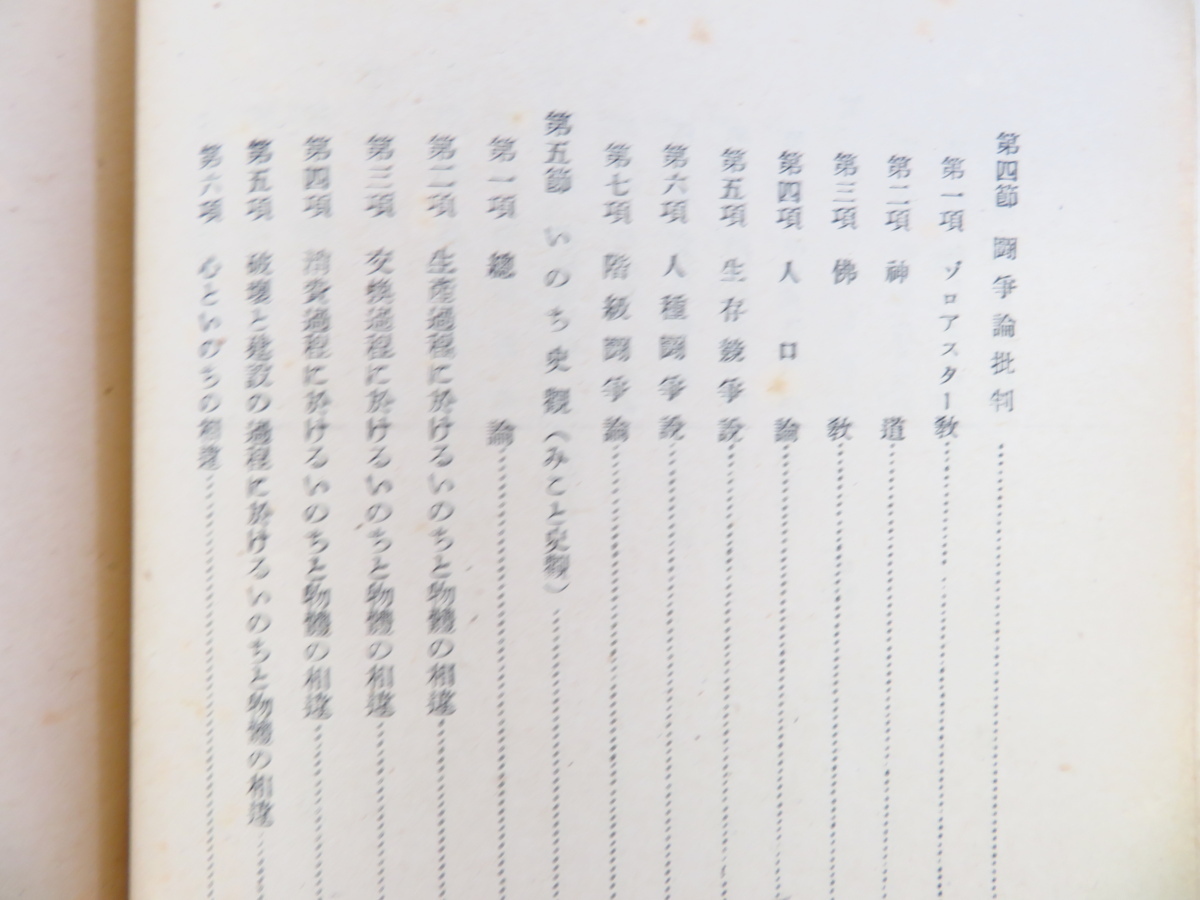 第四節 鬪爭論批判
第一項 ゾロアスター敎
第二項 神道
第三項 佛敎
第四項 人口論
第五項 生存競爭說
第六項 人種鬪爭說
第七項 階級鬪爭論
第五節 いのち史觀（みこと史觀）
第一項 總論
第二項 生產過程に於けるいのちと物體の相違
第三項 交換過程に於けるいのちと物體の相違
第四項 消費過程に於けるいのちと物體の相違
第五項 破壞と建設の過程に於けるいのちと物體の相違
第六項 心といのちの相違